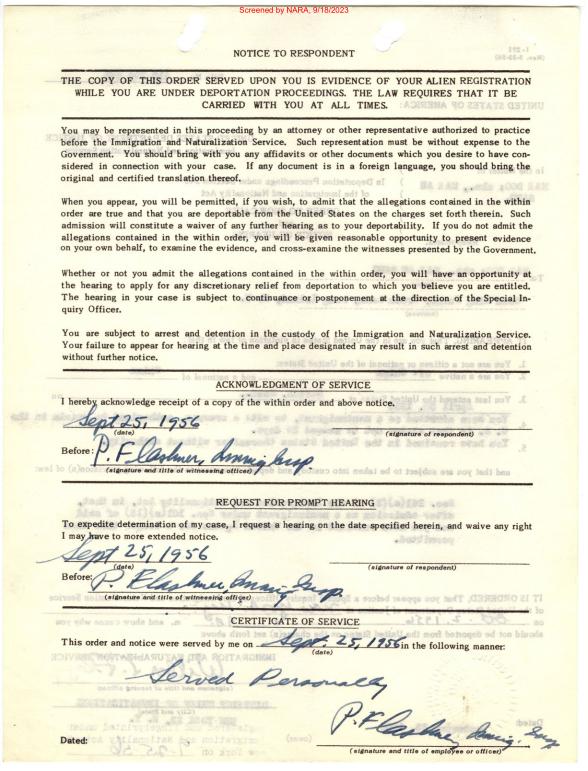 Screened by NARA, 9/18/2023
NOTICE TO RESPONDENT
THE COPY OF THIS ORDER SERVED UPON YOU IS EVIDENCE OF YOUR ALIEN REGISTRATION
WHILE YOU ARE UNDER DEPORTATION PROCEEDINGS. THE LAW REQUIRES THAT IT BE
CARRIED WITH YOU AT ALL TIMES.
You may be represented in this proceeding by an attorney or other representative authorized to practice
before the Immigration and Naturalization Service. Such representation must be without expense to the
Government. You should bring with you any affidavits or other documents which you desire to have con-
sidered in connection with your case. If any document is in a foreign language, you should bring the
original and certified translation thereof.
When you appear, you will be permitted, if you wish, to admit that the allegations contained in the within
order are true and that you are deportable from the United States on the charges set forth therein. Such
admission will constitute a waiver of any further hearing as to your deportability. If you do not admit the
allegations contained in the within order, you will be given reasonable opportunity to present evidence
on your own behalf, to examine the evidence, and cross-examine the witnesses presented by the Government.
Whether or not you admit the allegations contained in the within order, you will have an opportunity at
the hearing to apply for any discretionary relief from deportation to which you believe you are entitled.
The hearing in your case is subject to continuance or postponement at the direction of the Special In-
quiry Officer.
You are subject to arrest and detention in the custody of the Immigration and Naturalization Service.
Your failure to appear for hearing at the time and place designated may result in such arrest and detention
without further notice.
ACKNOWLEDGMENT OF SERVICE
I hereby acknowledge receipt of a copy of the within order and above notice.
Sept 25, 1956
(date) (signature of respondent)
Before: P. F.
(signature and title of witnessing officer)
REQUEST FOR PROMPT HEARING
To expedite determination of my case, I request a hearing on the date specified herein, and waive any right
I may have to more extended notice.
Sept 25, 1956
(date) (signature of respondent)
Before: P.
(signature and title of witnessing officer)
CERTIFICATE OF SERVICE
This order and notice were served by me on Sept. 25, 1956 in the following manner:
(date)
Served Personally
P. F.
Dated:
(signature and title of employee or officer)